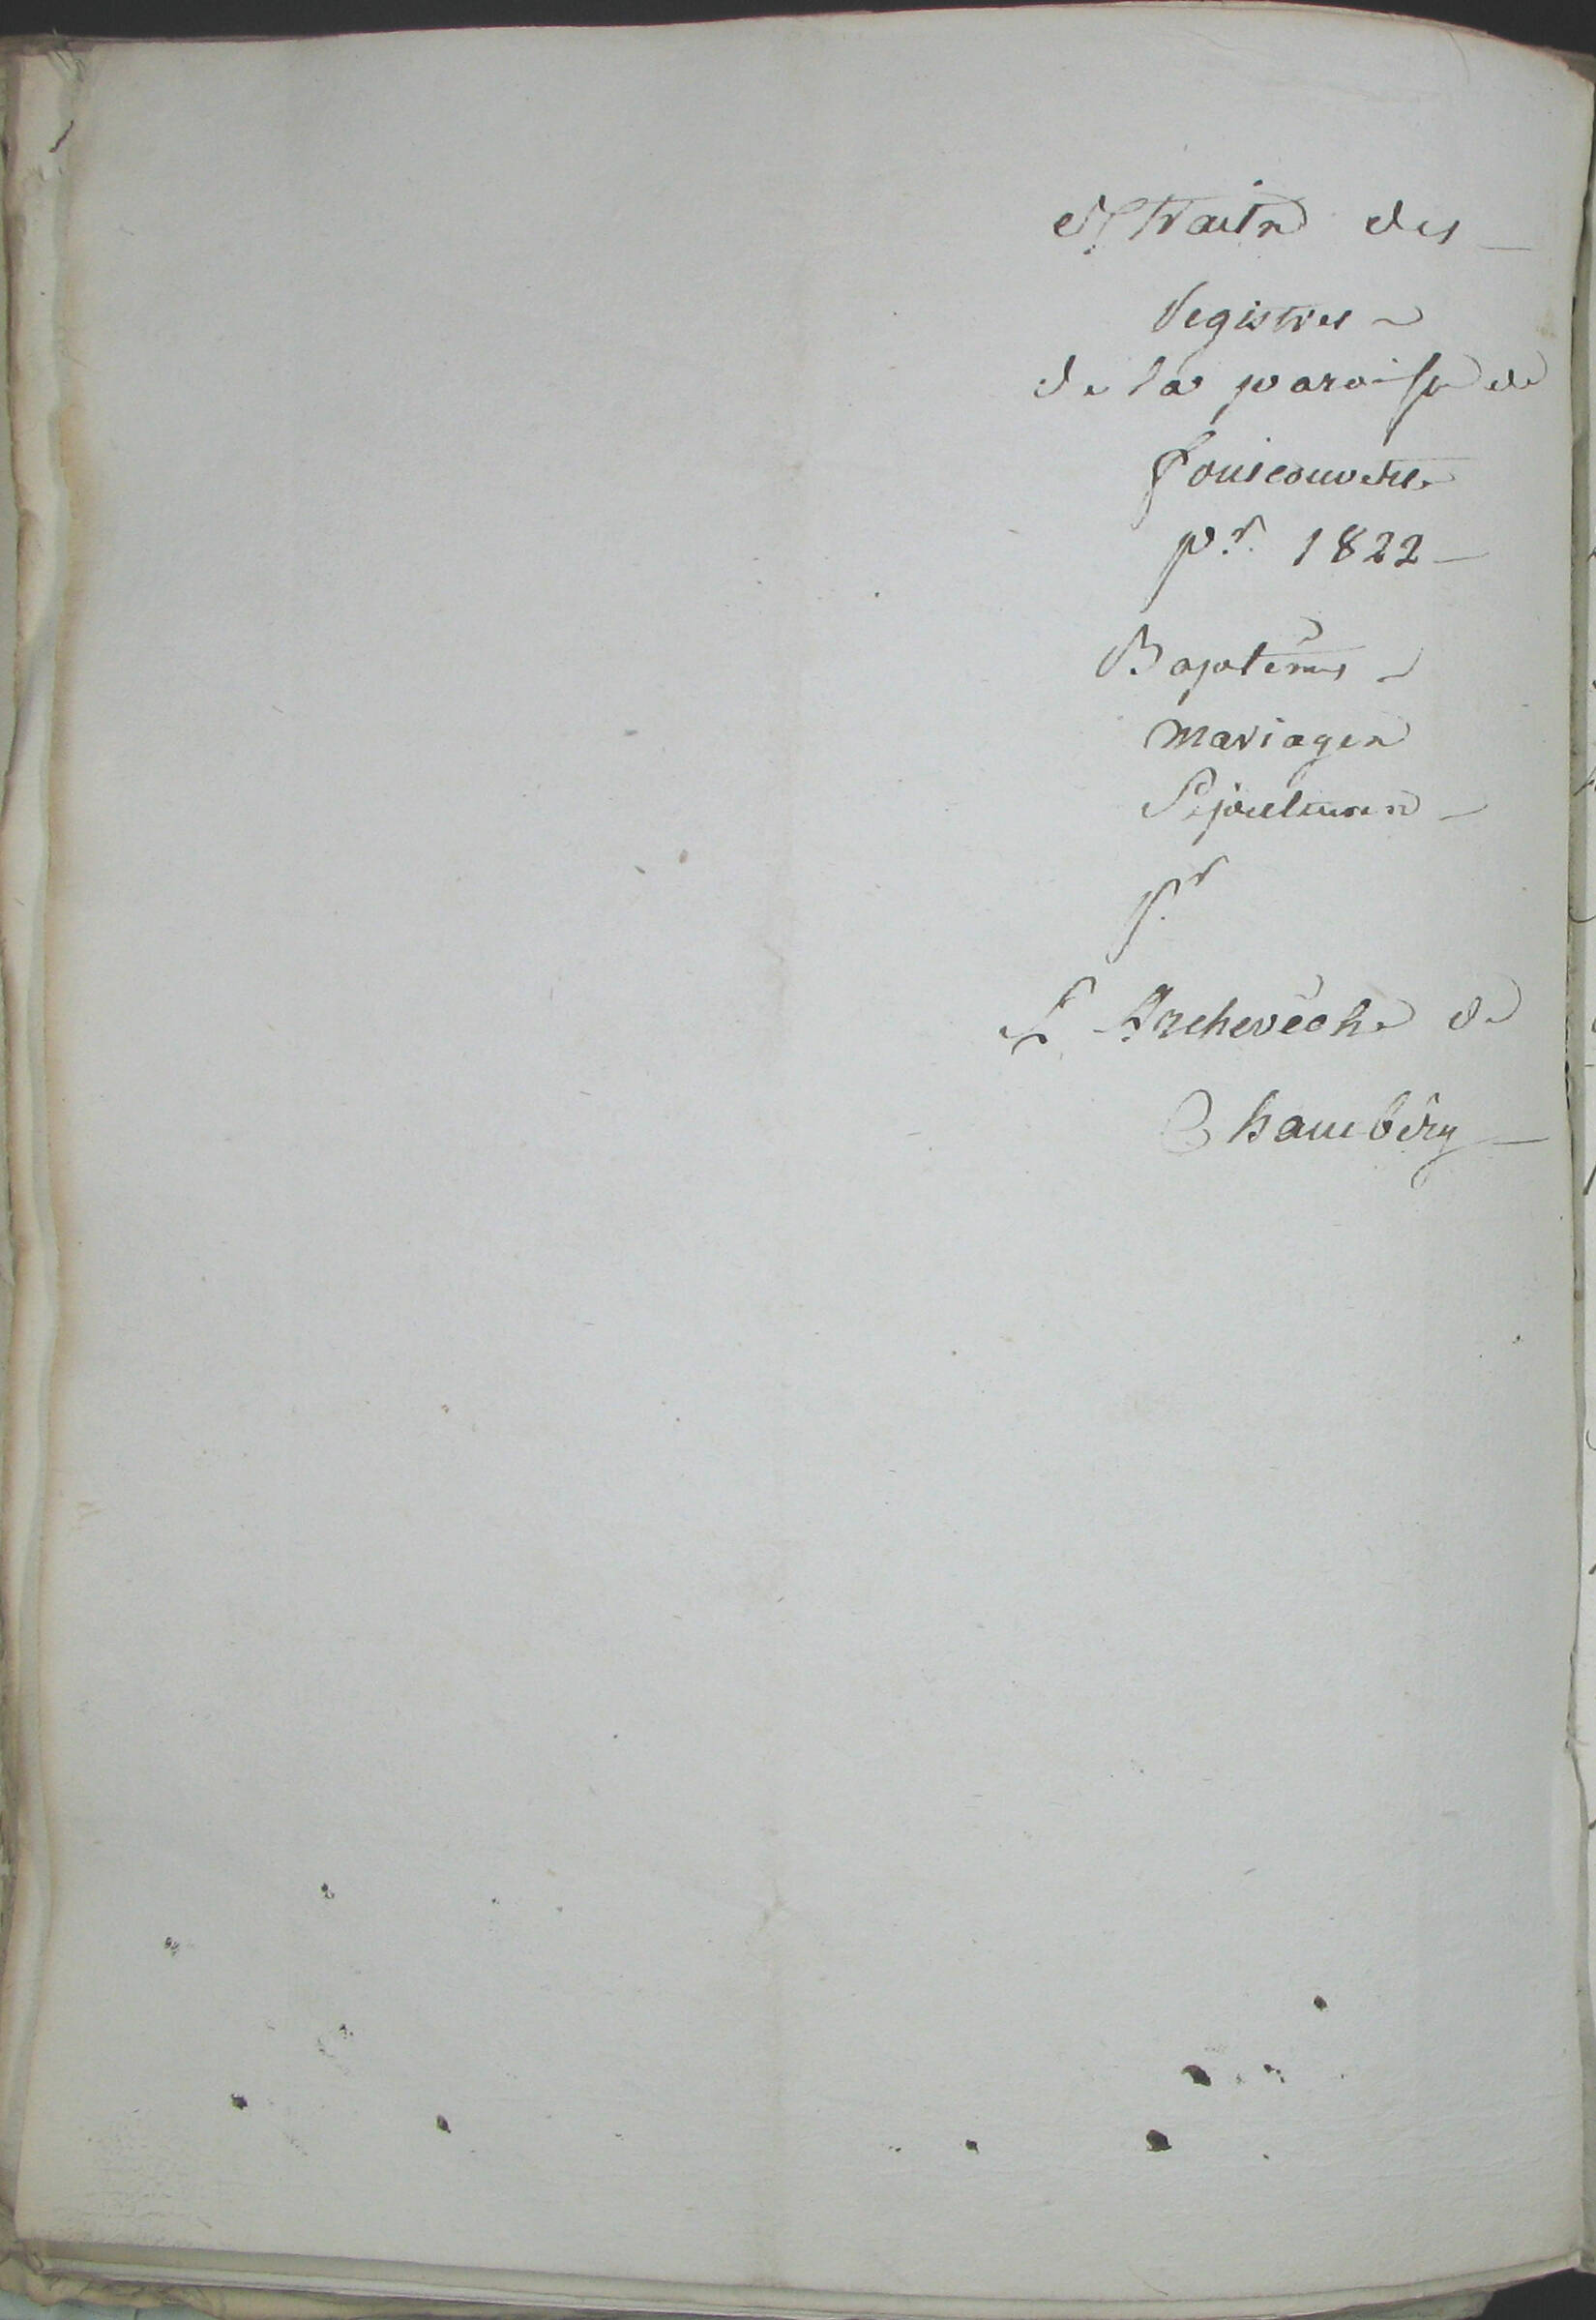 Extraits des
Registres
de la paroisse de
Fonscouverte
pr. 1822
Baptêmes
Mariages
Sépultures
pr.
L'Archevêché de
Chambéry